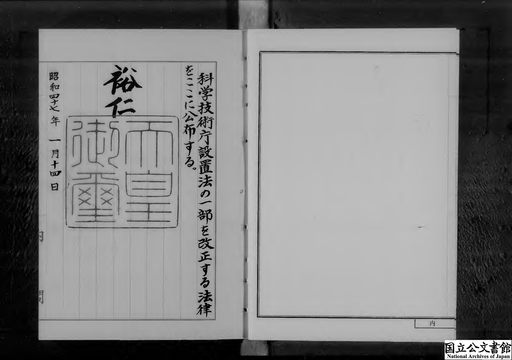 科学技術庁設置法の一部を改正する法律
をここに公布する。
裕仁
天皇
御璽
昭和四十七年 一月十四日
内
閣
内
国立公文書館
National Archives of Japan